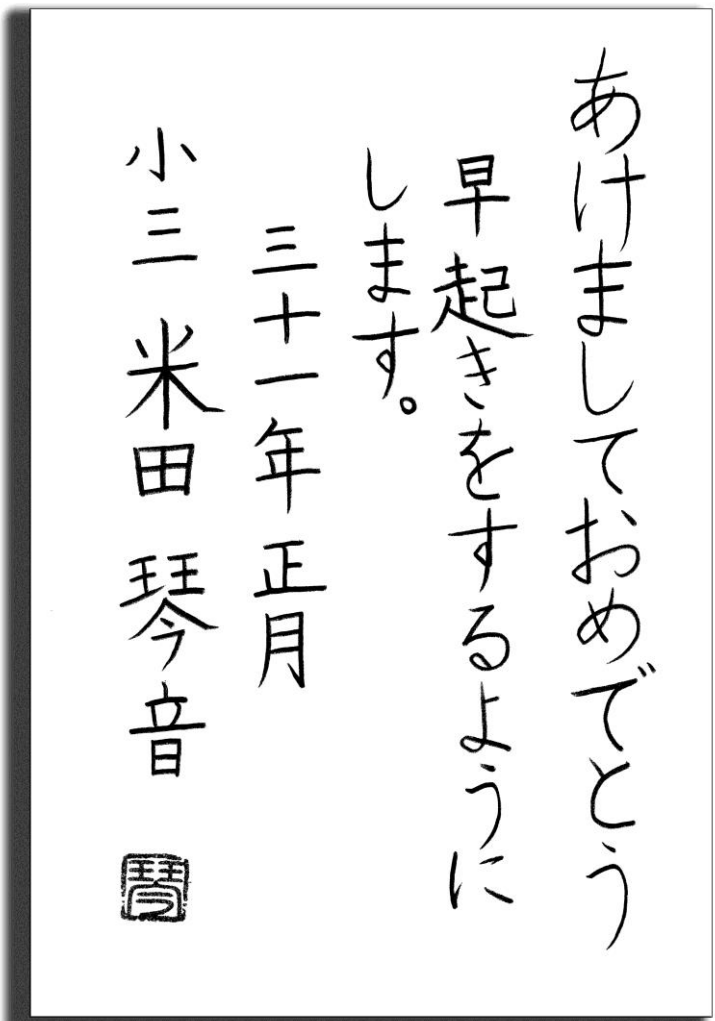 あけましておめでとう
早起きをするように
します。
三十一年 正月
小三 米田 琴音
琴